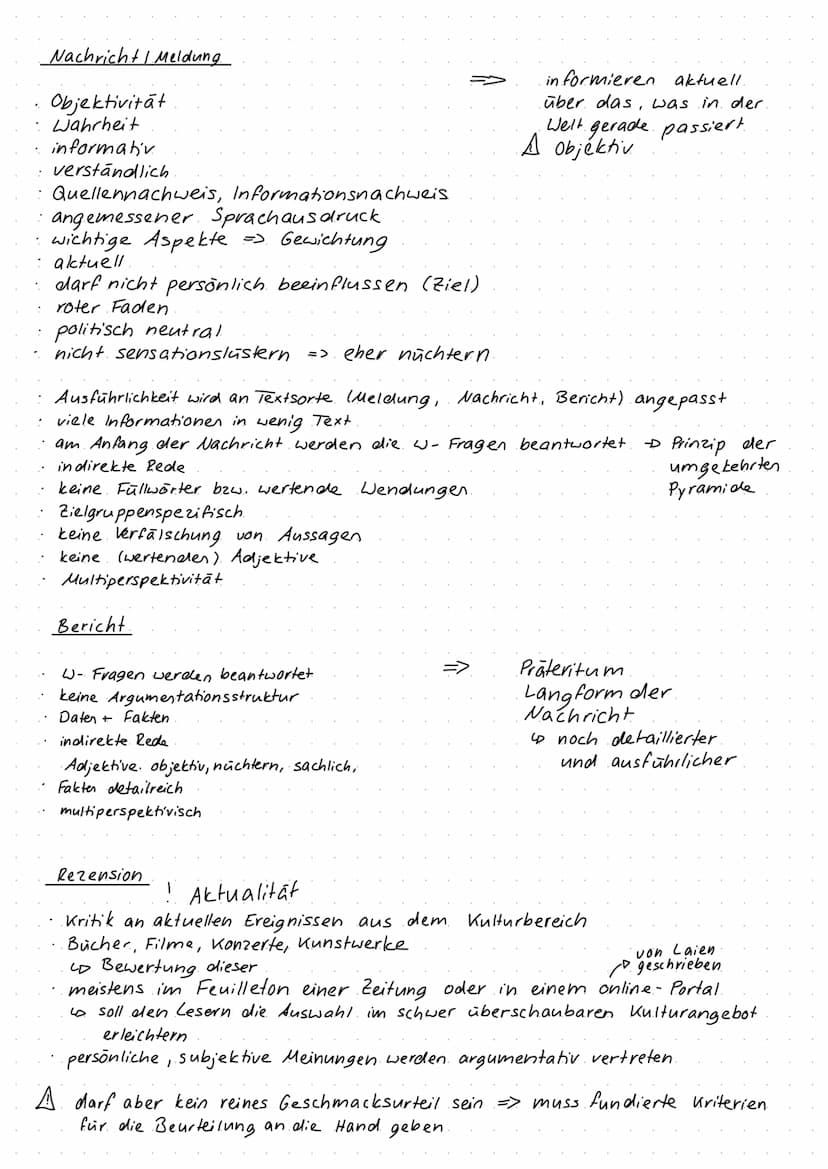 Nachricht / Meldung
=> informieren aktuell
über das, was in der
Welt gerade passiert
⚠ Objektiv
· Objektivität
· Wahrheit
· informativ
· verständlich
· Quellennachweis, Informationsnachweis
· angemessener Sprachausdruck
· wichtige Aspekte => Gewichtung
· aktuell
· darf nicht persönlich beeinflussen (Ziel)
· roter Faden
· politisch neutral
· nicht sensationslüstern => eher nüchtern
· Ausführlichkeit wird an Textsorte (Meldung, Nachricht, Bericht) angepasst
· viele Informationen in wenig Text
· am Anfang der Nachricht werden die W-Fragen beantwortet → Prinzip der
umgekehrten
Pyramide
· indirekte Rede
· keine Füllwörter bzw. wertende Wendungen
· Zielgruppenspezifisch
· keine Verfälschung von Aussagen
· keine (wertenden) Adjektive
· Multiperspektivität
Bericht
· W-Fragen werden beantwortet
· keine Argumentationsstruktur
· Daten + Fakten
· indirekte Rede
Adjektive: objektiv, nüchtern, sachlich,
· Fakten detailreich
· multiperspektivisch
=> Präteritum
Langform der
Nachricht
↳ noch detaillierter
und ausführlicher
Rezension
! Aktualität
· Kritik an aktuellen Ereignissen aus dem Kulturbereich
· Bücher, Filme, Konzerte, Kunstwerke
↳ Bewertung dieser
von Laien
geschrieben
· meistens im Feuilleton einer Zeitung oder in einem online-Portal
↳ soll den Lesern die Auswahl im schwer überschaubaren Kulturangebot
erleichtern
· persönliche, subjektive Meinungen werden argumentativ vertreten
⚠ darf aber kein reines Geschmacksurteil sein => muss fundierte Kriterien
für die Beurteilung an die Hand geben